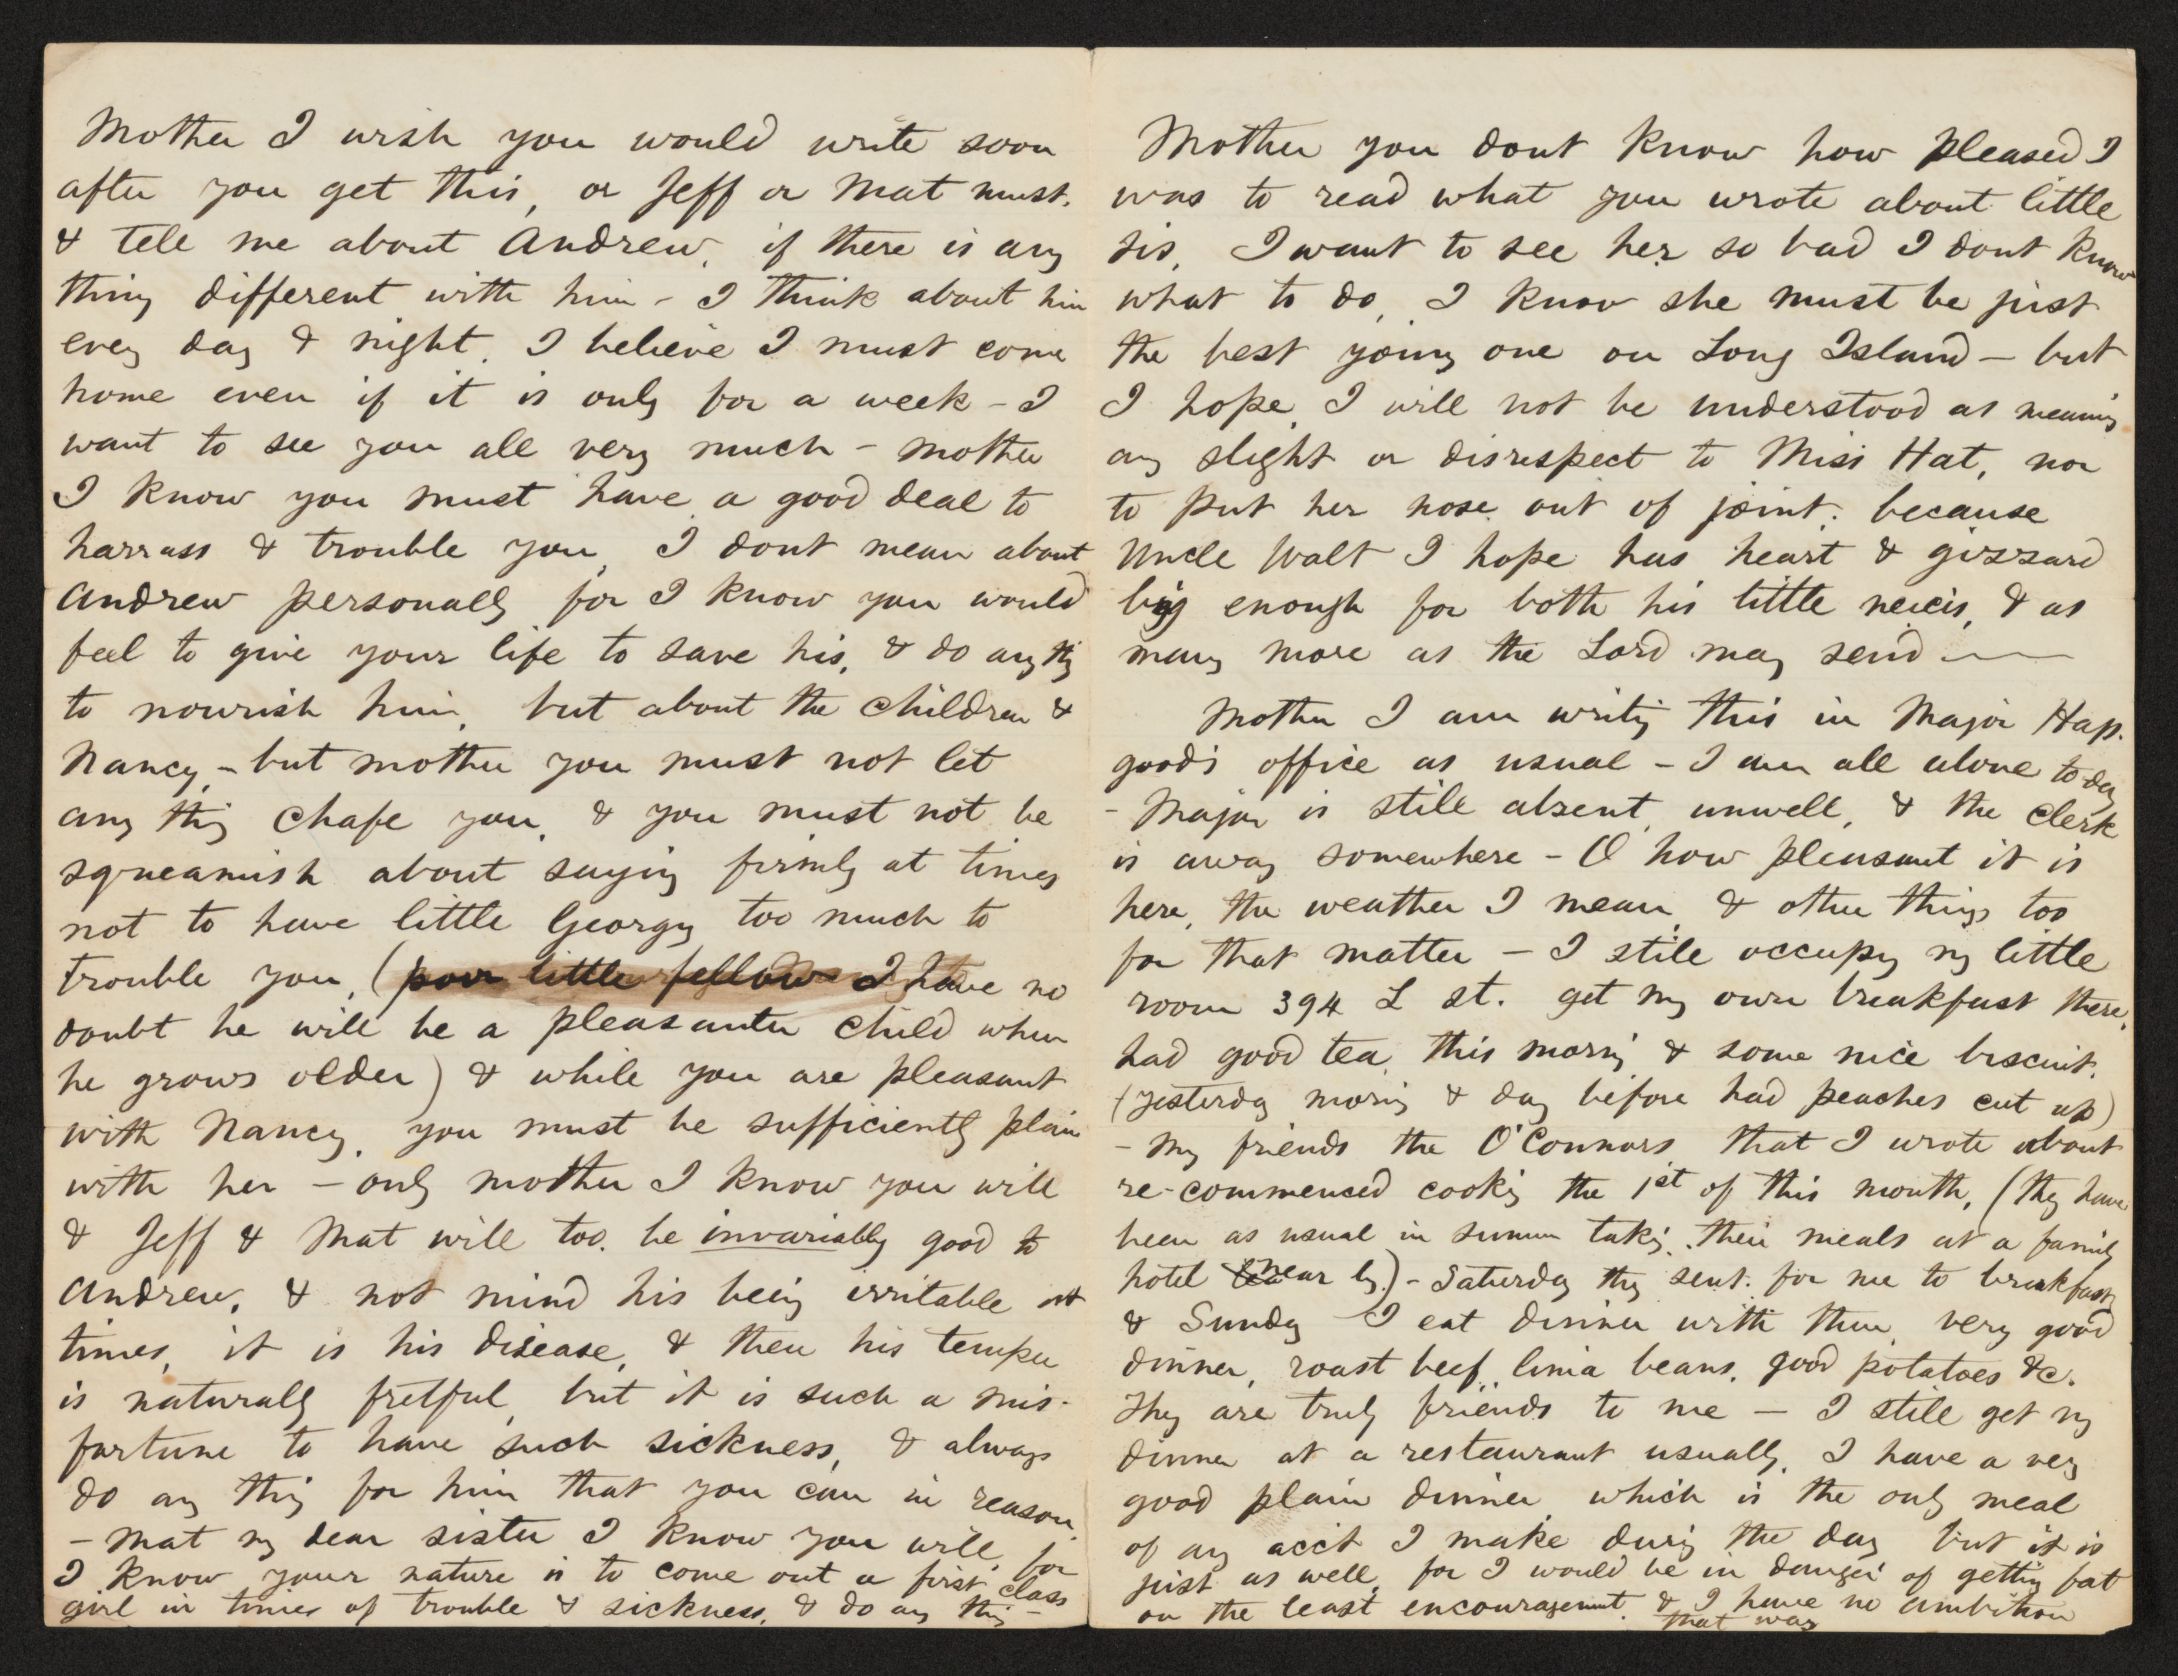 Mother I wish you would write soon
after you get this, or Jeff or Mat must.
& tell me about Andrew, if there is any
thing different with him – I think about him
every day & night. I believe I must come
home even if it is only for a week – I
want to see you all very much – mother
I know you must have a good deal to
harrass & trouble you, I dont mean about
Andrew personally for I know you would
feel to give your life to save his, & do any thg
to nourish him, but about the children &
Nancy, – but mother you must not let
any thig chafe you, & you must not be
squeamish about saying firmly at times
not to have little Georgy too much to
trouble you, (poor little fellow I have no
doubt he will be a pleasanter child when
he grows older) & while you are pleasant
with Nancy, you must be sufficiently plain
with her – only mother I know you will
& Jeff & Mat will too. be invariably good to
Andrew, & not mind his being irritable at
times, it is his disease, & then his temper
is naturally fretful, but it is such a mis-
fortune to have such sickness, & always
do any thig for him that you can in reason.
– Mat my dear sister I know you will, for
I know your nature is to come out a first class
girl in times of trouble & sickness, & do any thig –
Mother you dont know how pleased I
was to read what you wrote about little
sis, I want to see her so bad I dont know
what to do, I know she must be just
the best young one on Long Island – but
I hope I will not be understood as meaning
any slight or disrespect to Miss Hat, nor
to put her nose out of joint, because
Uncle Walt I hope has heart & gizzard
big enough for both his little neices, & as
many more as the Lord may send –
Mother I am writing this in Major Hap-
good's office as usual – I am all alone to-day
– Major is still absent, unwell, & the clerk
is away somewhere – O how pleasant it is
here, the weather I mean, & other things too
for that matter – I still occupy my little
room 394 L st. get my own breakfast there,
had good tea this morng & some nice biscuit,
(yesterday morng & day before had peaches cut up)
– My friends the O'Connors that I wrote about
re-commenced cooking the 1st of this month, (they have
been as usual in summer takg their meals at a family
hotel near by.) – Saturday they sent for me to breakfast,
& Sunday I eat dinner with them, very good
dinner, roast beef, lima beans, good potatoes &c.
They are truly friends to me – I still get my
dinner at a restaurant usually. I have a very
good plain dinner which is the only meal
of any acc't I make durig the day but it is
just as well, for I would be in danger of getting fat
on the least encouragement, & I have no ambition
that way